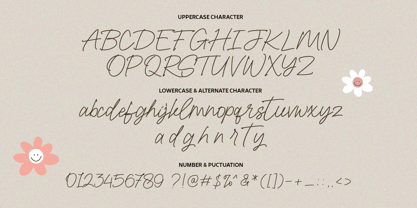 UPPERCASE CHARACTER
ABCDEFGHIJKLMN
OPQRSTUVWXYZ
LOWERCASE & ALTERNATE CHARACTER
abcdefghijklmnopqrstuvwxyz
a d g h n r t y
NUMBER & PUCTUATION
0123456789 ?!@#$%^&*([])-+_::,.<>